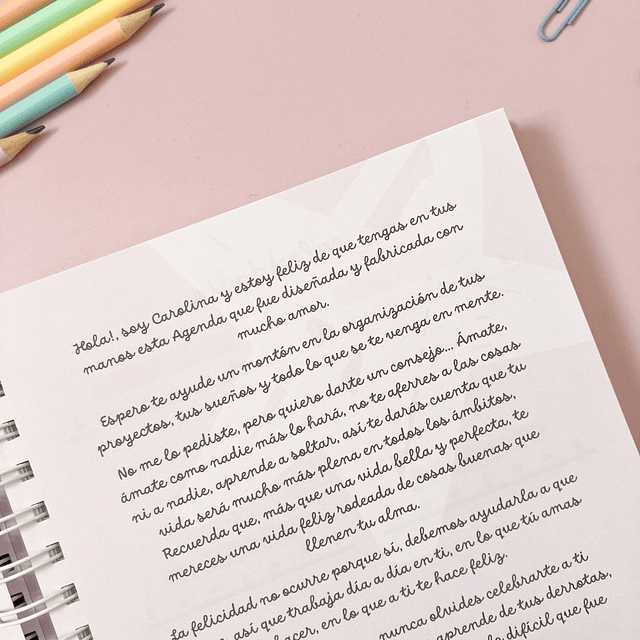 Hola!, soy Carolina y estoy feliz de que tengas en tus
manos esta Agenda que fue diseñada y fabricada con
mucho amor.
Espero te ayude un montón en la organización de tus
proyectos, tus sueños y todo lo que se te venga en mente.
No me lo pediste, pero quiero darte un consejo... Ámate,
ámate como nadie más lo hará, no te aferres a las cosas
ni a nadie, aprende a soltar, así te darás cuenta que tu
vida será mucho más plena en todos los ámbitos,
Recuerda que, más que una vida bella y perfecta, te
mereces una vida feliz rodeada de cosas buenas que
llenen tu alma.
La felicidad no ocurre porque sí, debemos ayudarla a que
así que trabaja día a día en ti, en lo que tú amas
hacer, en lo que a ti te hace feliz.
nunca olvides celebrarte a ti
aprende de tus derrotas,
lo difícil que fue